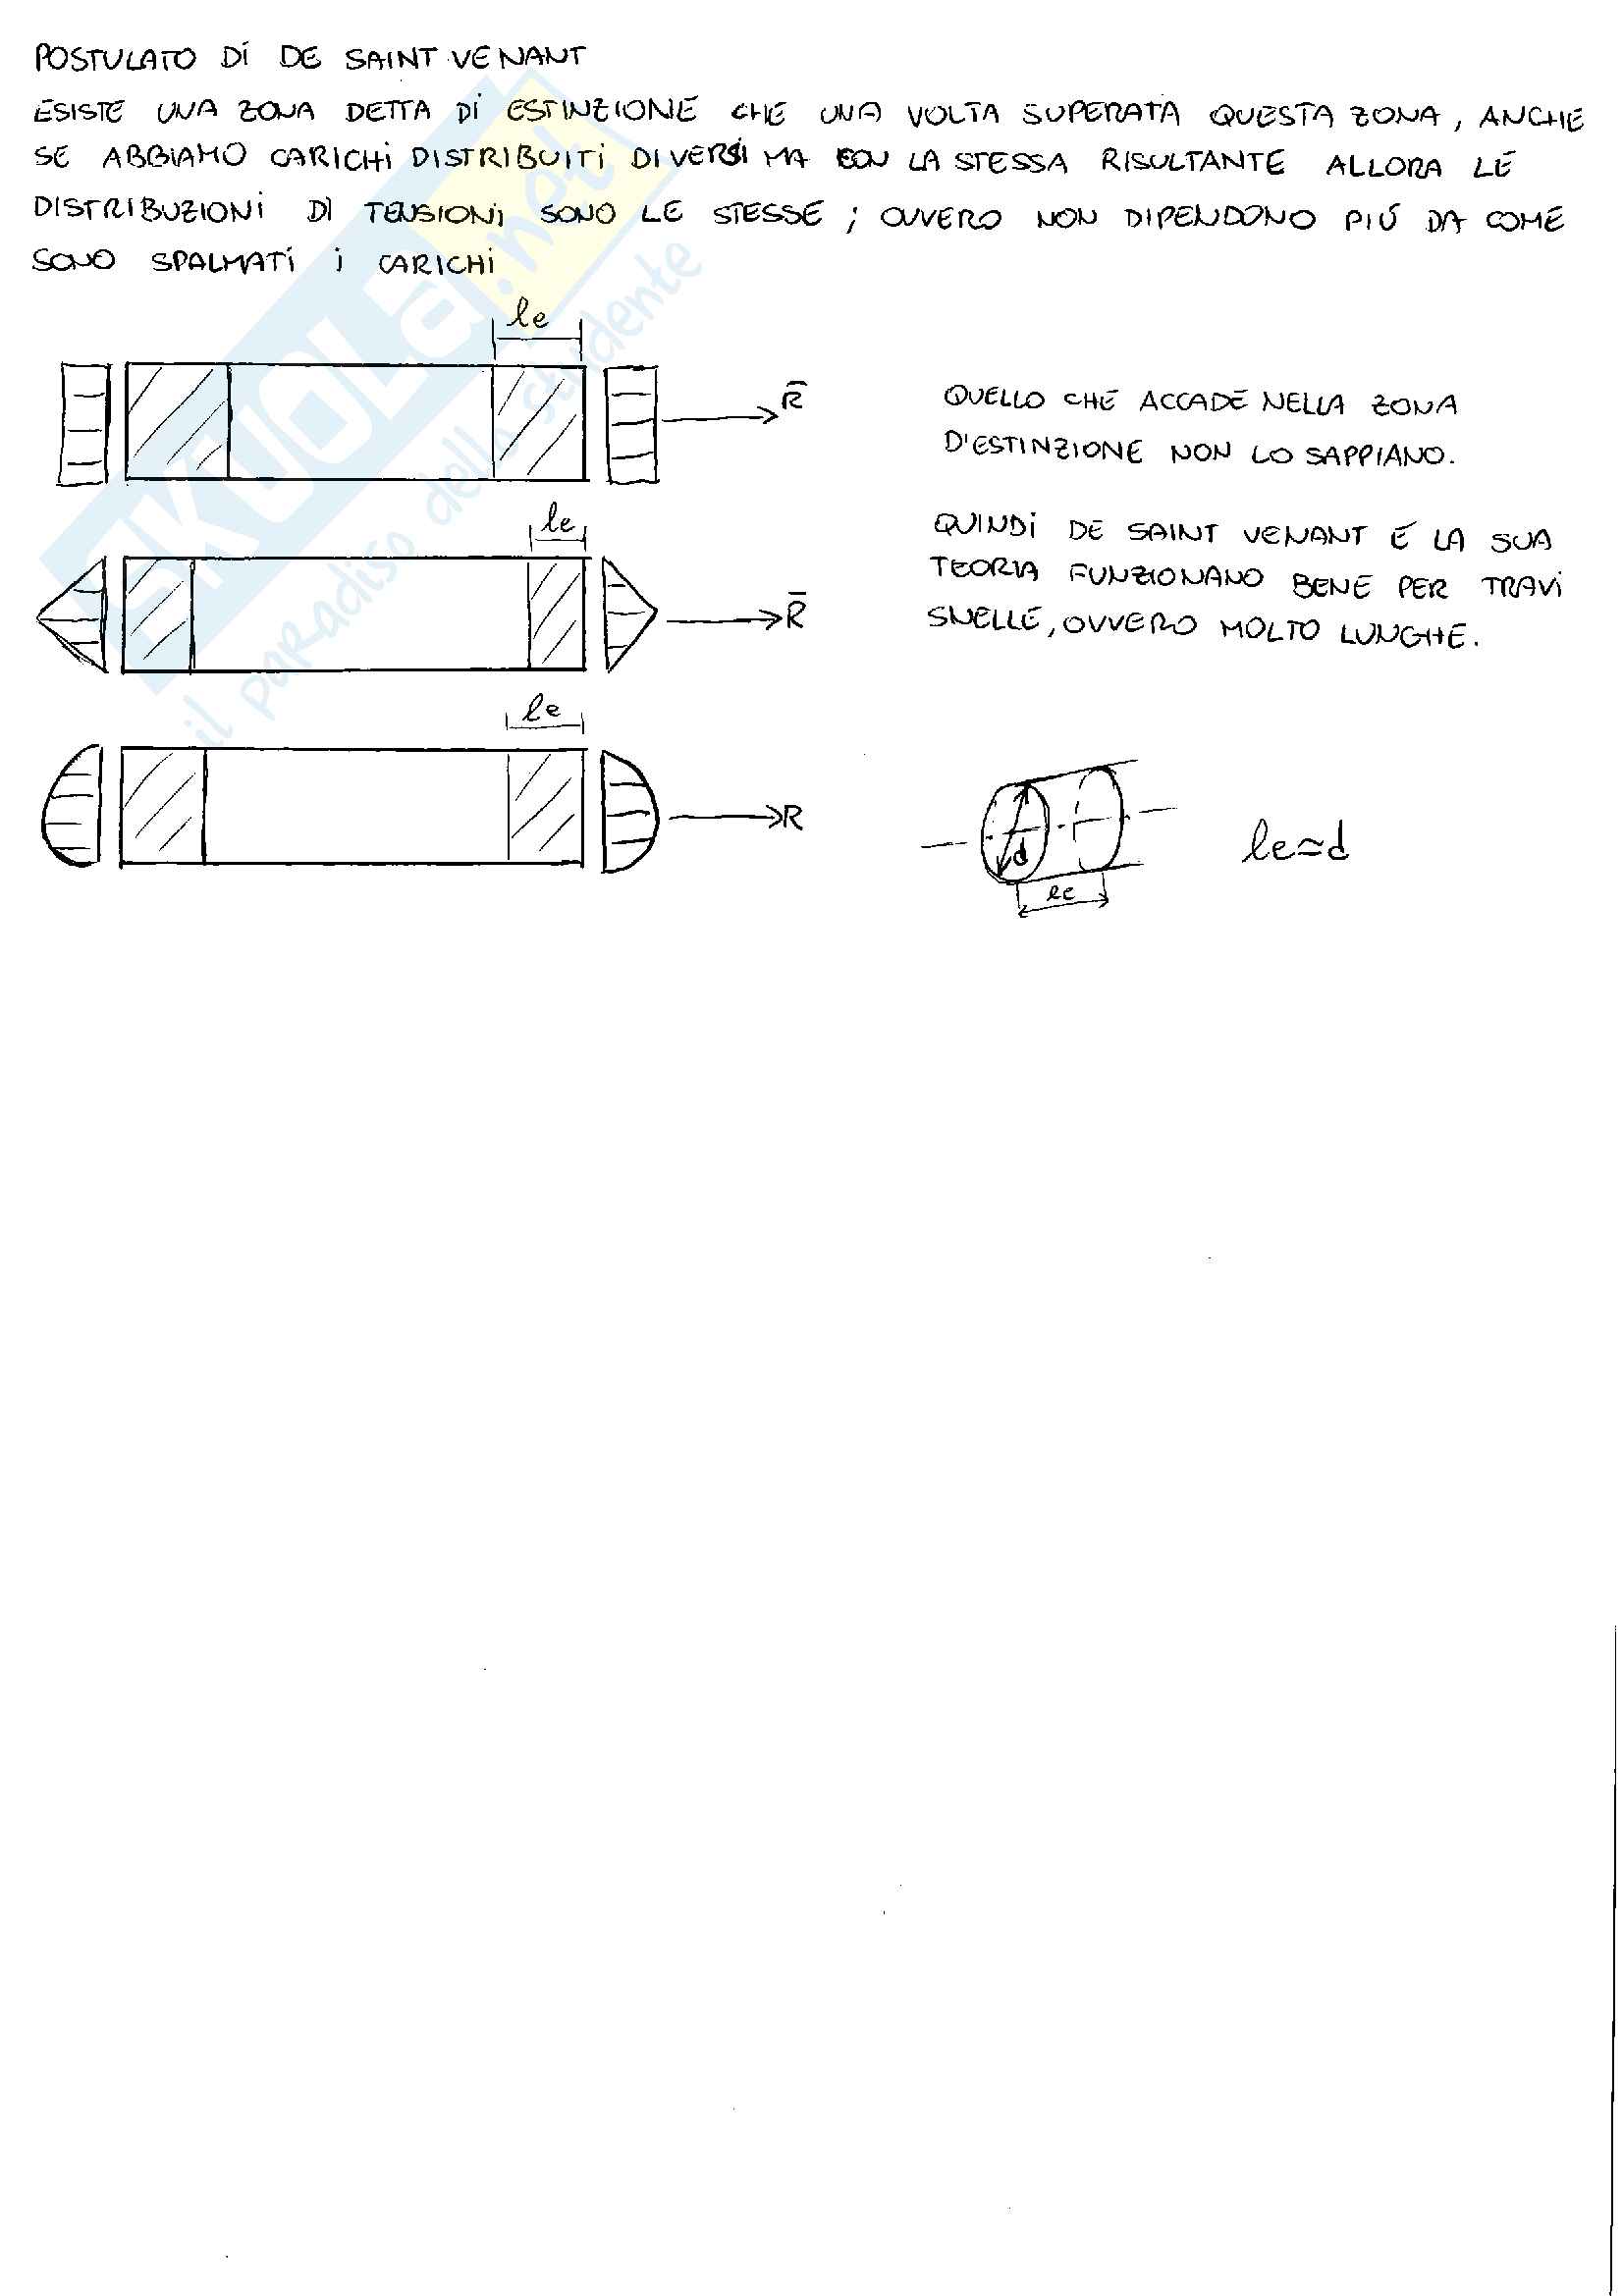 POSTULATO DI DE SAINT VENANT
ESISTE UNA ZONA DETTA DI ESTINZIONE CHE UNA VOLTA SUPERATA QUESTA ZONA, ANCHE
SE ABBIAMO CARICHI DISTRIBUITI DIVERSI MA CON LA STESSA RISULTANTE ALLORA LE
DISTRIBUZIONI DI TENSIONI SONO LE STESSE; OVVERO NON DIPENDONO PIÚ DA COME
SONO SPALMATI I CARICHI
le
R̅
QUELLO CHE ACCADE NELLA ZONA
D'ESTINZIONE NON LO SAPPIANO.
le
R̅
QUINDI DE SAINT VENANT E LA SUA
TEORIA FUNZIONANO BENE PER TRAVI
SNELLE, OVVERO MOLTO LUNGHE.
le
R
d
le
le≃d
SKUOLA.net
il paradiso dello studente